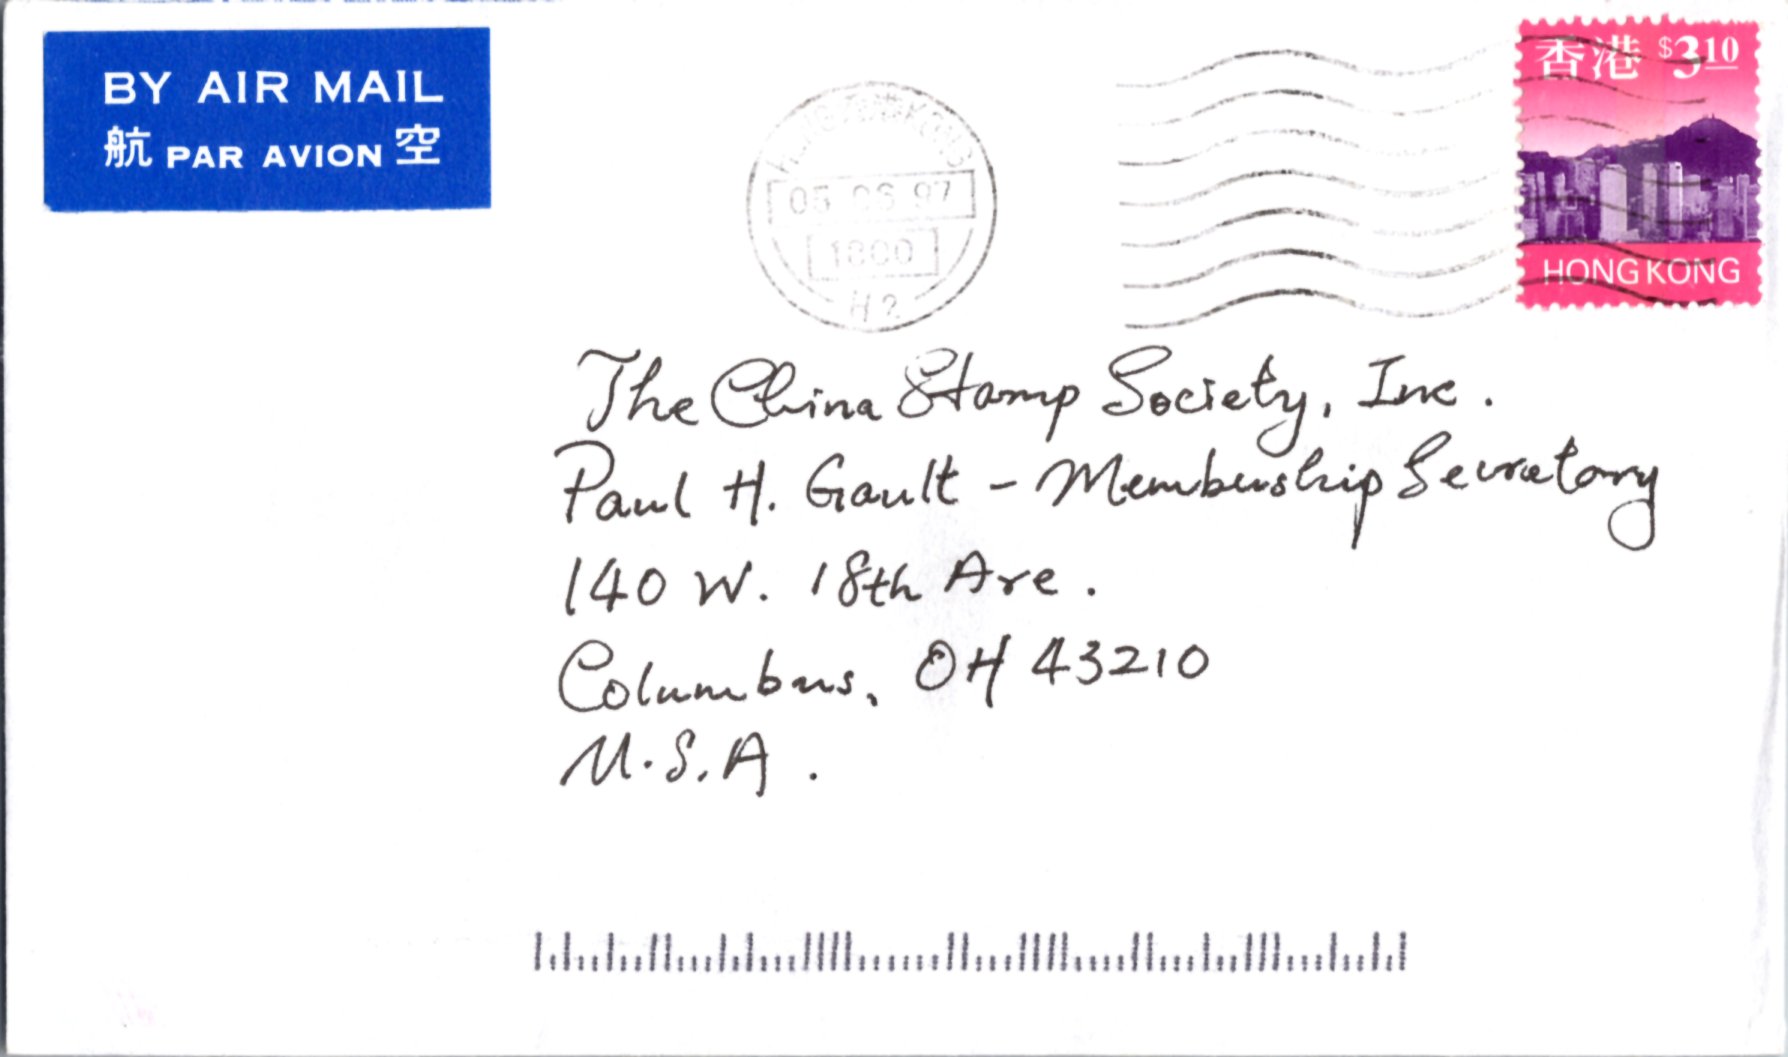 BY AIR MAIL
航 PAR AVION 空
香港 $310
HONG KONG
HONG KONG
05 06 97
1800
H2
The China Stamp Society, Inc.
Paul H. Gault - Membership Secretary
140 W. 18th Ave.
Columbus, OH 43210
U.S.A.